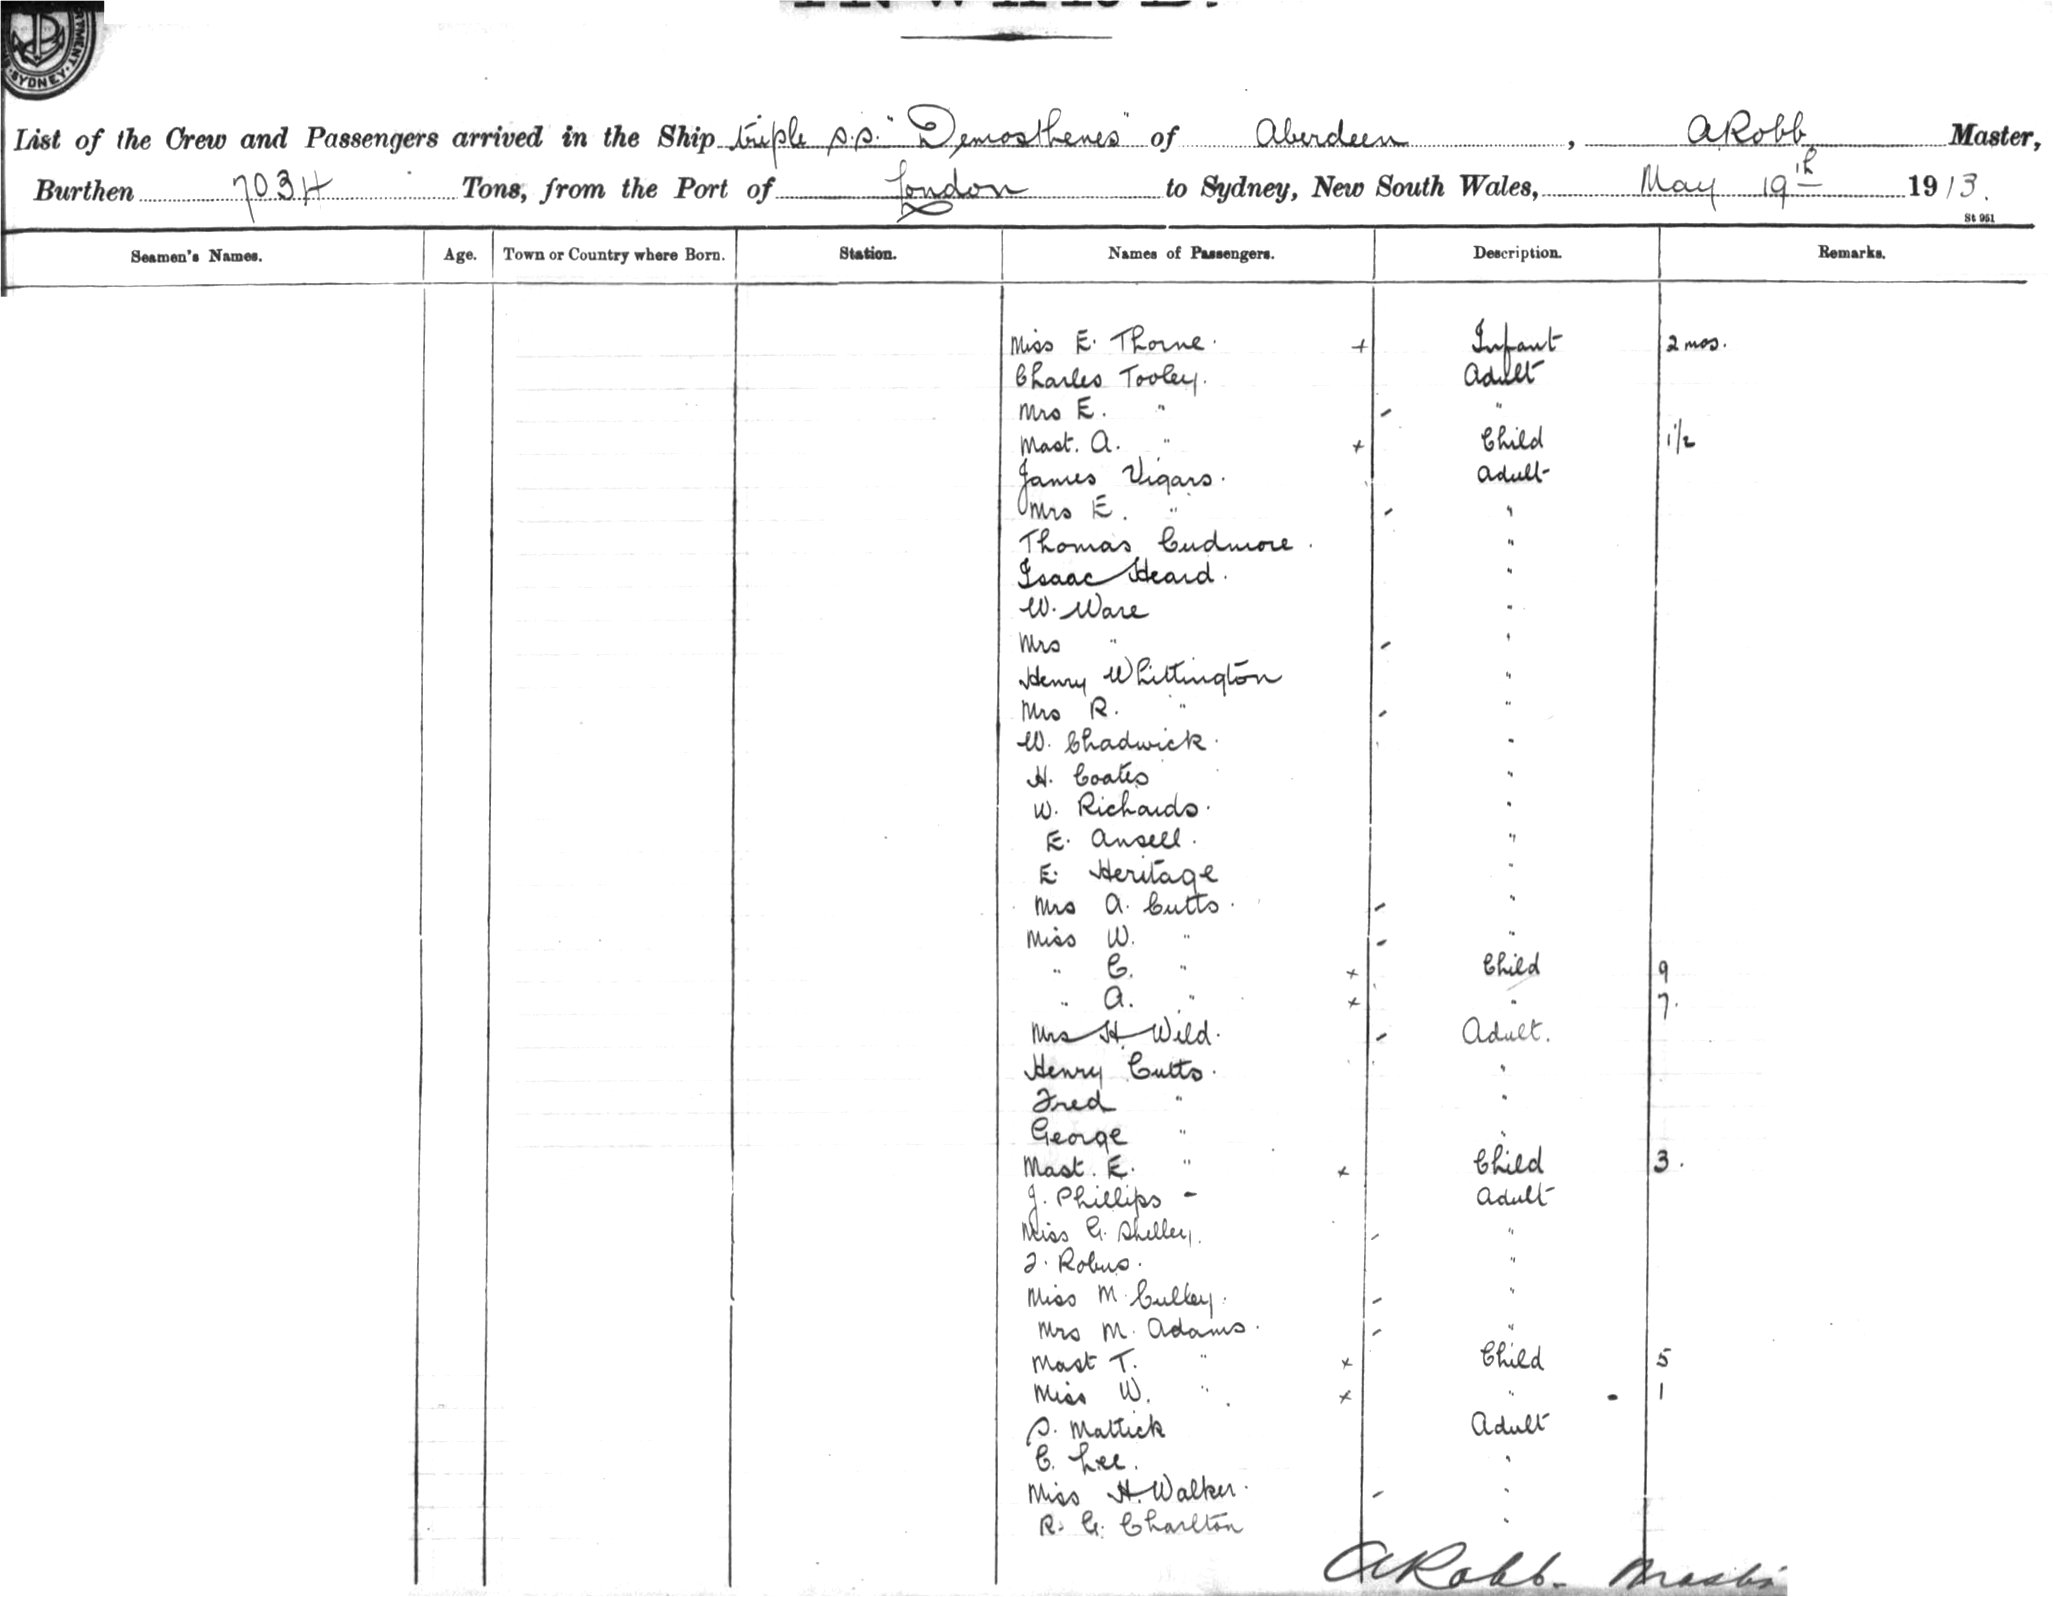 SYDNEY
List of the Crew and Passengers arrived in the Ship triple s.s. "Demosthenes" of Aberdeen, A Robb Master,
Burthen 7034 Tons, from the Port of London to Sydney, New South Wales, May 19th 1913.
St 961
Seamen's Names. Age. Town or Country where Born. Station. Names of Passengers. Description. Remarks.
Miss E. Thorne. + Infant 2 mos.
Charles Tooley. Adult
Mrs E. " "
Mast. A. " + Child 1 1/2
James Vigars. Adult
Mrs E. " "
Thomas Cudmore. "
Isaac Heard. "
W. Ware "
Mrs " "
Henry Whittington "
Mrs R. " "
W. Chadwick. "
H. Coates "
W. Richards. "
E. Ansell. "
E. Heritage "
Mrs A. Cutts. "
Miss W. " "
" C. " + Child 9
" A. " + " 7.
Mrs H Wild. Adult.
Henry Cutts. "
Fred " "
George " "
Mast. E. " + Child 3.
J. Phillips - Adult
Miss G. Shelley. "
J. Robus. "
Miss M Culley. "
Mrs M. Adams. "
Mast T. " + Child 5
Miss W. " + " - 1
S. Mattick Adult
C. Lee. "
Miss H. Walker. "
R. G. Charlton "
A Robb - Master